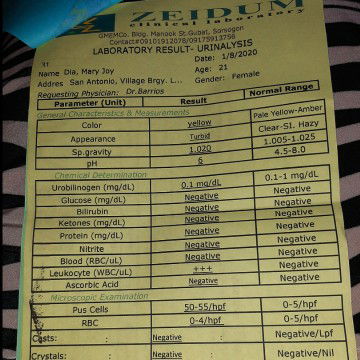 ZEIDUM
clinical laboratory
GMEMCo. Bldg. Manook St.Gubat, Sorsogon
Contact#09101912078/09173913756
LABORATORY RESULT- URINALYSIS
Date: 1/8/2020
Name Dia, Mary Joy Age: 21
Addres San Antonio, Village Brgy. L... Gender: Female
Requesting Physician: Dr.Barrios
Parameter (Unit) Result Normal Range
General Characteristics & Measurements
Color yellow Pale Yellow-Amber
Appearance Turbid Clear-Sl. Hazy
Sp.gravity 1.020 1.005-1.025
pH 6 4.5-8.0
Chemical Determination
Urobilinogen (mg/dL) 0.1 mg/dL 0.1-1 mg/dL
Glucose (mg/dL) Negative Negative
Bilirubin Negative Negative
Ketones (mg/dL) Negative Negative
Protein (mg/dL) Negative Negative
Nitrite Negative Negative
Blood (RBC/uL) Negative Negative
Leukocyte (WBC/uL) +++ Negative
Ascorbic Acid Negative Negative
Microscopic Examination
Pus Cells 50-55/hpf 0-5/hpf
RBC 0-4/hpf 0-5/hpf
Casts: Negative Negative/Lpf
Crystals: Negative Negative/Nil